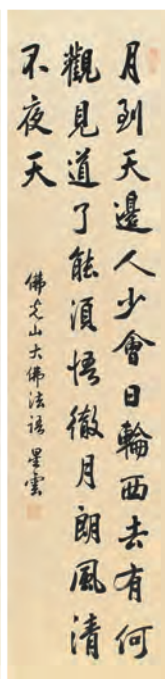 月到天邊人少會日輪西去有何
觀見道了能須悟徹月朗風清
不夜天
佛光山大佛法語 星雲